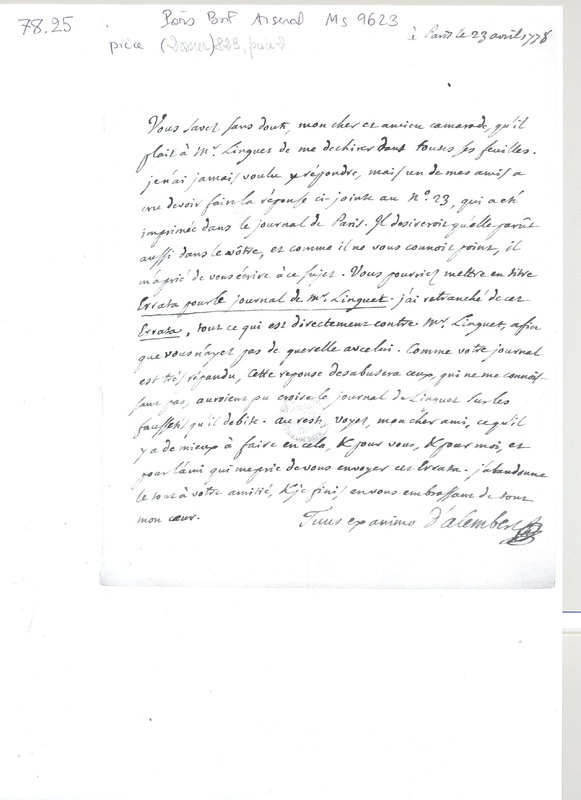 78.25 Paris BnF Arsenal Ms 9623
pièce (Dossier) 823, pièce
à Paris le 23 avril 1778
Vous savez sans doute, mon cher et ancien camarade, qu'il
plait à Mr. Linguet de me dechirer dans toutes ses feuilles.
je n'ai jamais voulu y répondre, mais un de mes amis a
cru devoir faire la réponse ci-jointe au no. 23, qui a été
imprimée dans le journal de Paris. Il desireroit qu'elle parût
aussi dans le vôtre, et comme il ne vous connoit point, il
m'a prié de vous écrire à ce sujet. Vous pourriez mettre en titre
Errata pour le journal de Mr. Linguet. j'ai retranché de cet
Errata, tout ce qui est directement contre Mr. Linguet, afin
que vous n'ayez pas de querelle avec lui. Comme votre journal
est très répandu, cette reponse desabusera ceux, qui ne me connois-
sant pas, auroient pu croire le journal de Linguet sur les
faussetés qu'il debite. au reste, voyez, mon cher ami, ce qu'il
y a de mieux à faire en cela, & pour vous, & pour moi, et
pour l'ami qui me prie de vous envoyer cet Errata. j'abandonne
le tout à votre amitié, & je finis en vous embrassant de tout
mon cœur. Tuus ex animo D'alembert